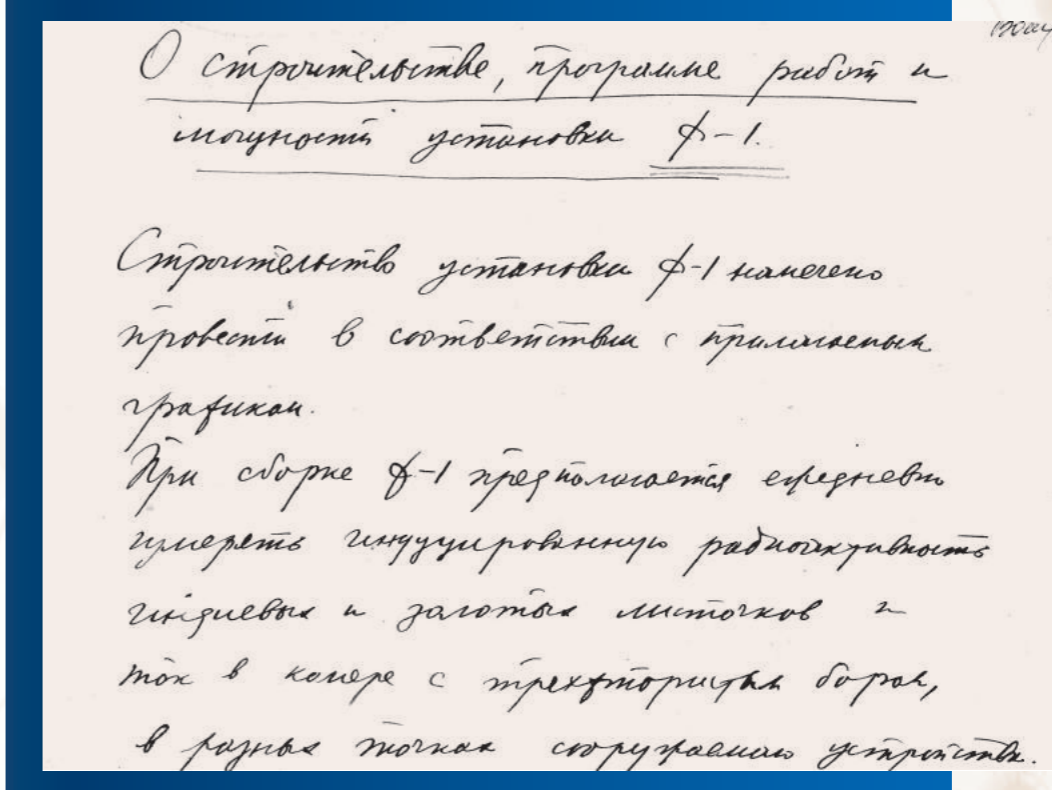 О строительстве, программе работ и
мощности установки Ф-1.
Строительство установки Ф-1 намечено
провести в соответствии с прилагаемым
графиком.
При сборке Ф-1 предполагается ежедневно
измерять индуцированную радиоактивность
индиевых и золотых листочков и
ток в камере с трехфтористым бором,
в разных точках сооружаемого устройства.